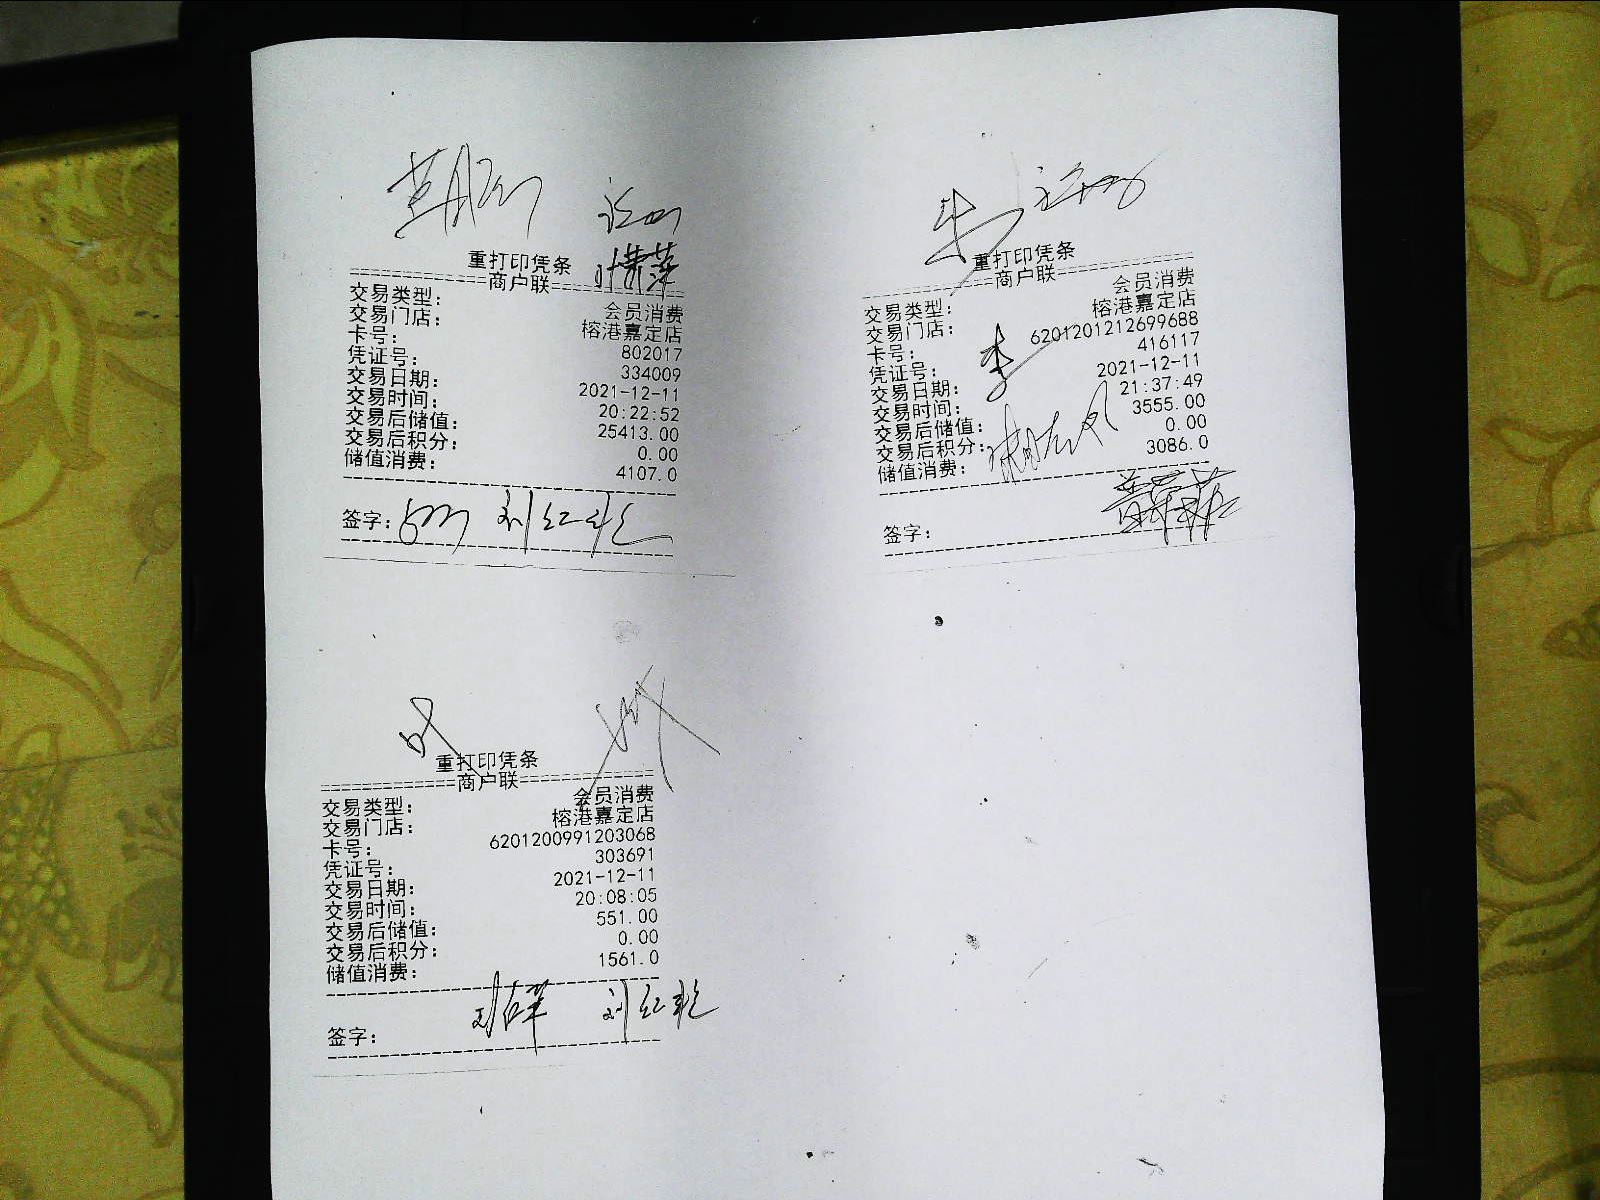 重打印凭条
商户联
交易类型: 会员消费
交易门店: 榕港嘉定店
卡号: 802017
凭证号: 334009
交易日期: 2021-12-11
交易时间: 20:22:52
交易后储值: 25413.00
交易后积分: 0.00
储值消费: 4107.0
签字: 刘红艳
重打印凭条
商户联
交易类型: 会员消费
交易门店: 榕港嘉定店
卡号: 6201201212699688
凭证号: 416117
交易日期: 2021-12-11
交易时间: 21:37:49
交易后储值: 3555.00
交易后积分: 0.00
储值消费: 3086.0
签字:
重打印凭条
商户联
交易类型: 会员消费
交易门店: 榕港嘉定店
卡号: 6201200991203068
凭证号: 303691
交易日期: 2021-12-11
交易时间: 20:08:05
交易后储值: 551.00
交易后积分: 0.00
储值消费: 1561.0
签字: 刘红艳